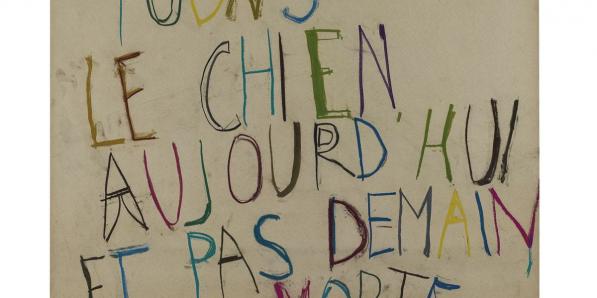 TUONS
LE CHIEN
AUJOURD'HUI
ET PAS DEMAIN
MORTE